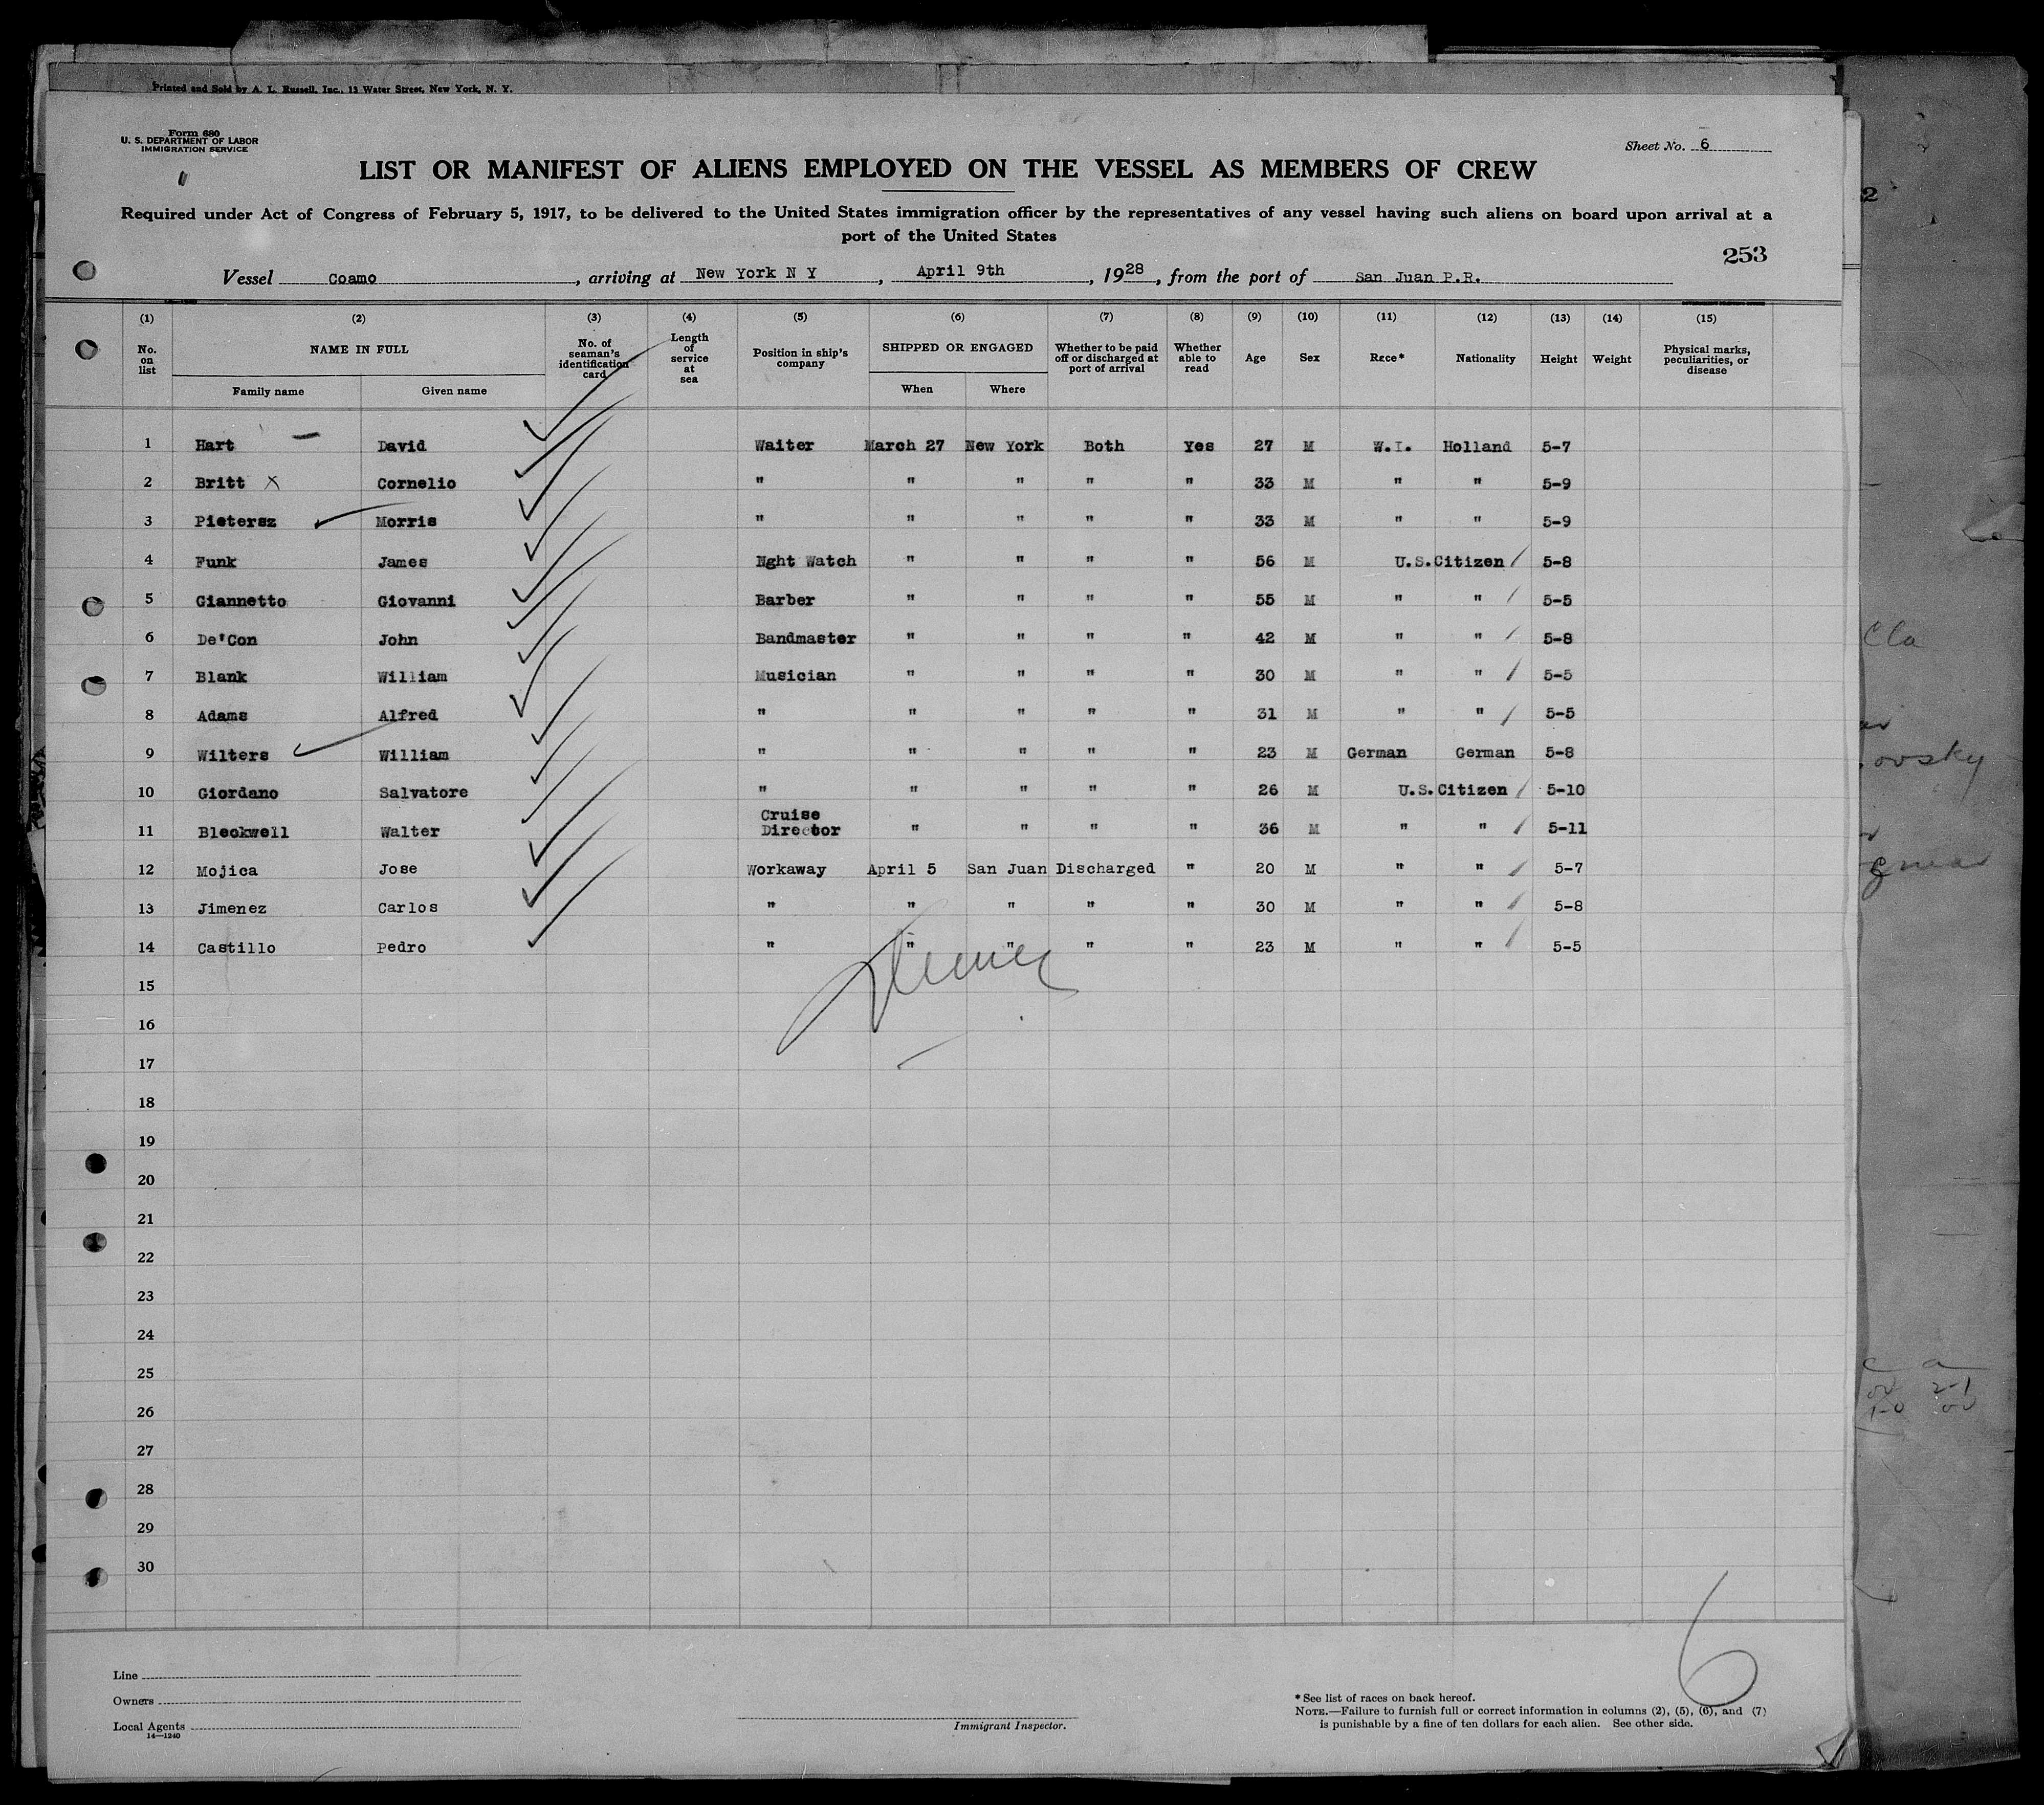 Printed and Sold by A. L. Russell, Inc., 13 Water Street, New York, N. Y.
Form 680
U. S. DEPARTMENT OF LABOR
IMMIGRATION SERVICE
Sheet No. 6
LIST OR MANIFEST OF ALIENS EMPLOYED ON THE VESSEL AS MEMBERS OF CREW
Required under Act of Congress of February 5, 1917, to be delivered to the United States immigration officer by the representatives of any vessel having such aliens on board upon arrival at a
port of the United States
253
Vessel Coamo, arriving at New York N Y, April 9th, 1928, from the port of San Juan P.R.
(1) (2) (3) (4) (5) (6) (7) (8) (9) (10) (11) (12) (13) (14) (15)
No. on list NAME IN FULL Family name Given name No. of seaman's identification card Length of service at sea Position in ship's company SHIPPED OR ENGAGED When Where Whether to be paid off or discharged at port of arrival Whether able to read Age Sex Race* Nationality Height Weight Physical marks, peculiarities, or disease
1 Hart David Waiter March 27 New York Both Yes 27 M W.I. Holland 5-7
2 Britt X Cornelio " " " " " 33 M " " 5-9
3 Pietersz Morris " " " " " 33 M " " 5-9
4 Funk James Nght Watch " " " " 56 M U.S.Citizen 5-8
5 Giannetto Giovanni Barber " " " " 55 M " " 5-5
6 De'Con John Bandmaster " " " " 42 M " " 5-8
7 Blank William Musician " " " " 30 M " " 5-5
8 Adams Alfred " " " " " 31 M " " 5-5
9 Wilters William " " " " " 23 M German German 5-8
10 Giordano Salvatore " " " " " 26 M U.S.Citizen 5-10
11 Bleckwell Walter Cruise Director " " " " 36 M " " 5-11
12 Mojica Jose Workaway April 5 San Juan Discharged " 20 M " " 5-7
13 Jimenez Carlos " " " " " 30 M " " 5-8
14 Castillo Pedro " " " " " 23 M " " 5-5
15
16
17
18
19
20
21
22
23
24
25
26
27
28
29
30
6
Line
Owners
Local Agents
14—1240
Immigrant Inspector.
*See list of races on back hereof.
NOTE.—Failure to furnish full or correct information in columns (2), (5), (6), and (7)
is punishable by a fine of ten dollars for each alien. See other side.